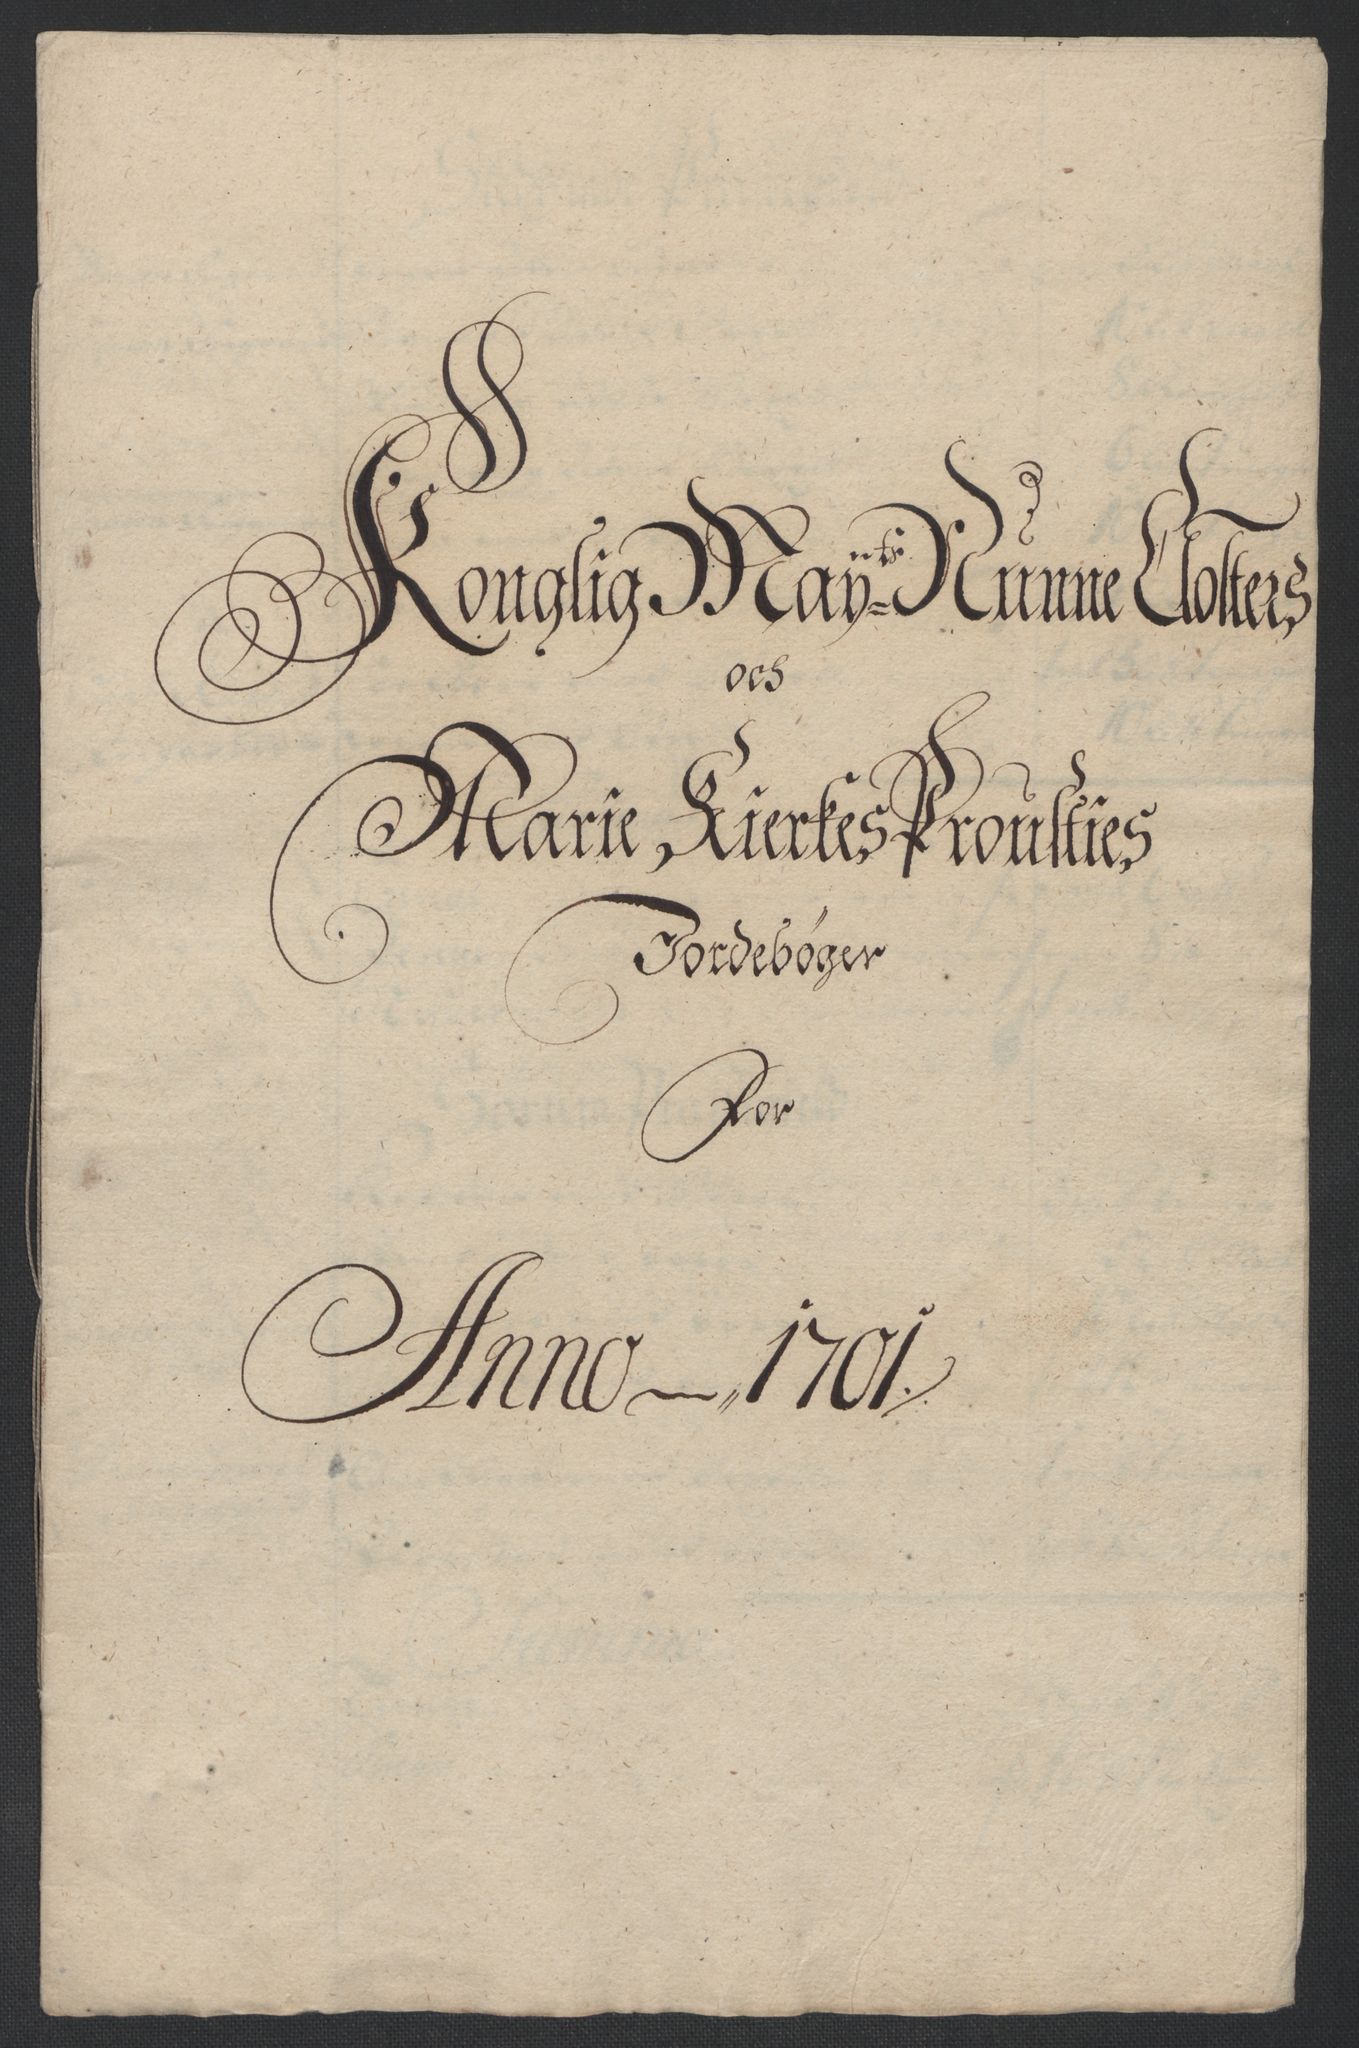 Konglig Maÿts= Nunne Closters
och
Marie Kierkes Prousties
Jordebøger
For
Anno — 1701.